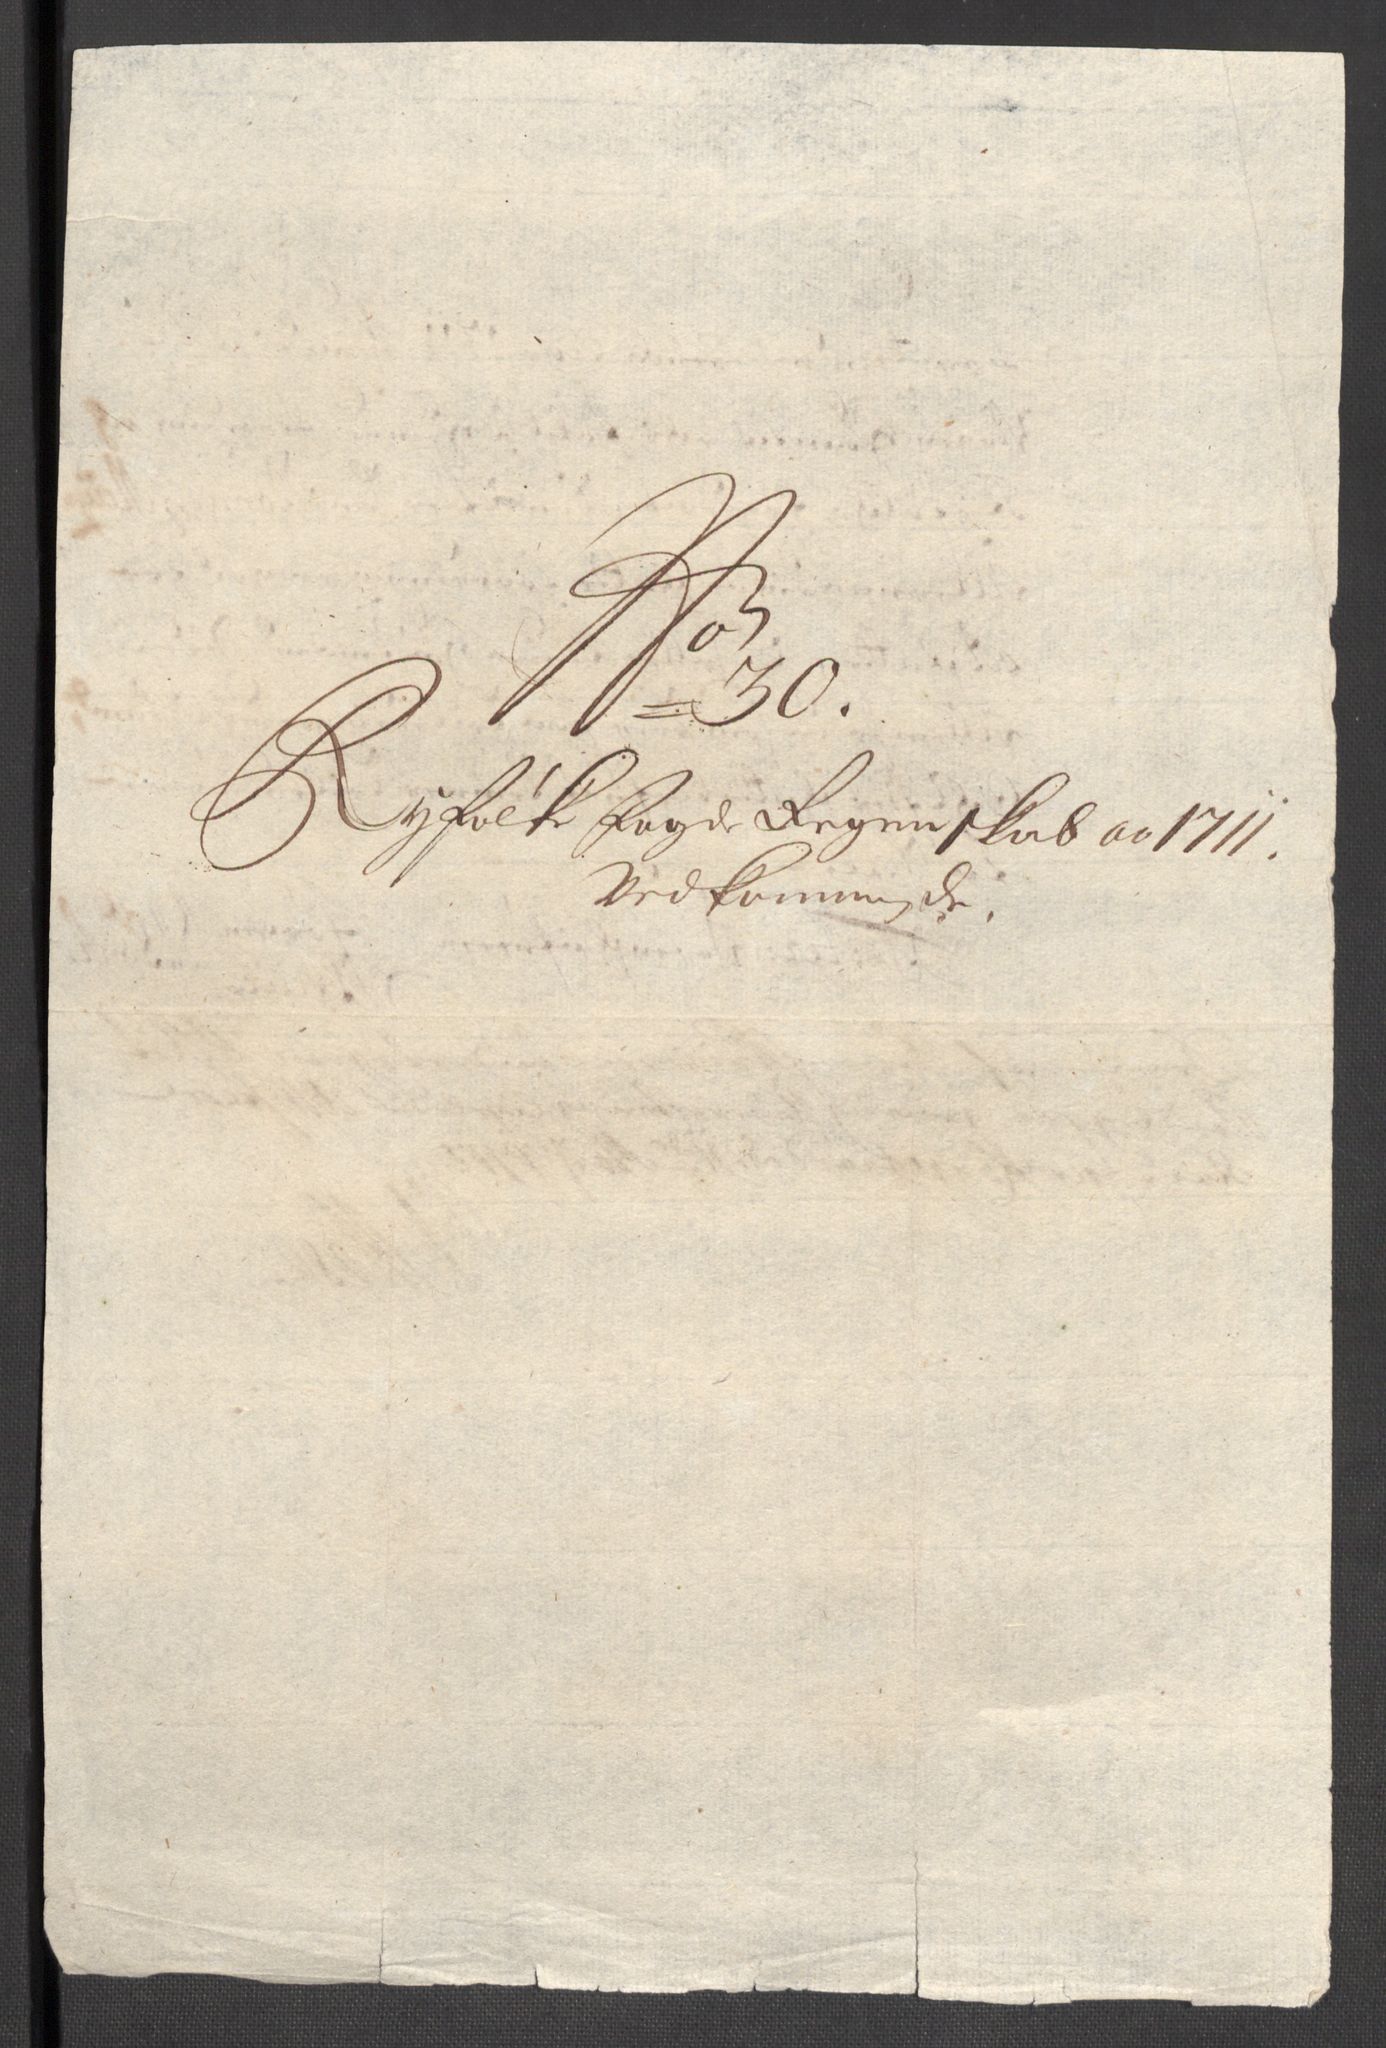 No
30.
Ryfölke Fogde Regenskab ao 1711.
Vedkommende.